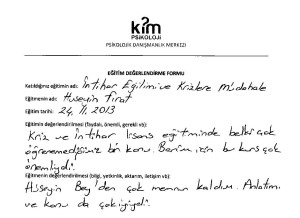 kim
PSİKOLOJİ
PSİKOLOJİK DANIŞMANLIK MERKEZİ
EĞİTİM DEĞERLENDİRME FORMU
Katıldığınız eğitimin adı: İntihar Eğilimi ve Krizlere Müdahale
Eğitmenin adı: Hüseyin Fırat
Eğitim tarihi: 24, 11, 2013
Eğitimin değerlendirilmesi (faydalı, önemli, gerekli vb):
Kriz ve İntihar lisans eğitiminde belki çok
öğrenemediğimiz bir konu. Benim için bu kurs çok
önemliydi.
Eğitmenin değerlendirilmesi (bilgi, yetkinlik, aktarım, iletişim vb)
Hüseyin Bey'den çok memnun kaldım. Anlatımı
ve konu da çok iyiydi.